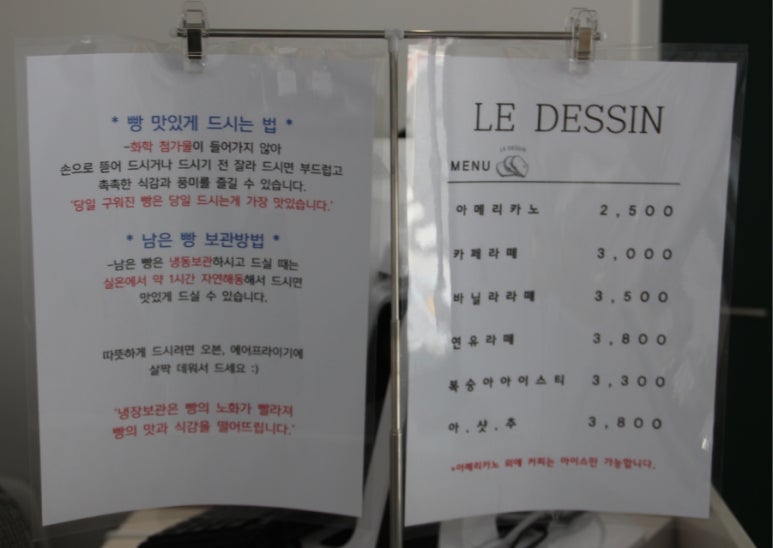 * 빵 맛있게 드시는 법 *
-화학 첨가물이 들어가지 않아
손으로 뜯어 드시거나 드시기 전 잘라 드시면 부드럽고
촉촉한 식감과 풍미를 즐길 수 있습니다.
'당일 구워진 빵은 당일 드시는게 가장 맛있습니다.'
* 남은 빵 보관방법 *
-남은 빵은 냉동보관하시고 드실 때는
실온에서 약 1시간 자연해동해서 드시면
맛있게 드실 수 있습니다.
따뜻하게 드시려면 오븐, 에어프라이기에
살짝 데워서 드세요 :)
'냉장보관은 빵의 노화가 빨라져
빵의 맛과 식감을 떨어뜨립니다.'
LE DESSIN
LE DESSIN
MENU
아메리카노 2,500
카페라떼 3,000
바닐라라떼 3,500
연유라떼 3,800
복숭아아이스티 3,300
아.샷.추 3,800
*아메리카노 외에 커피는 아이스만 가능합니다.